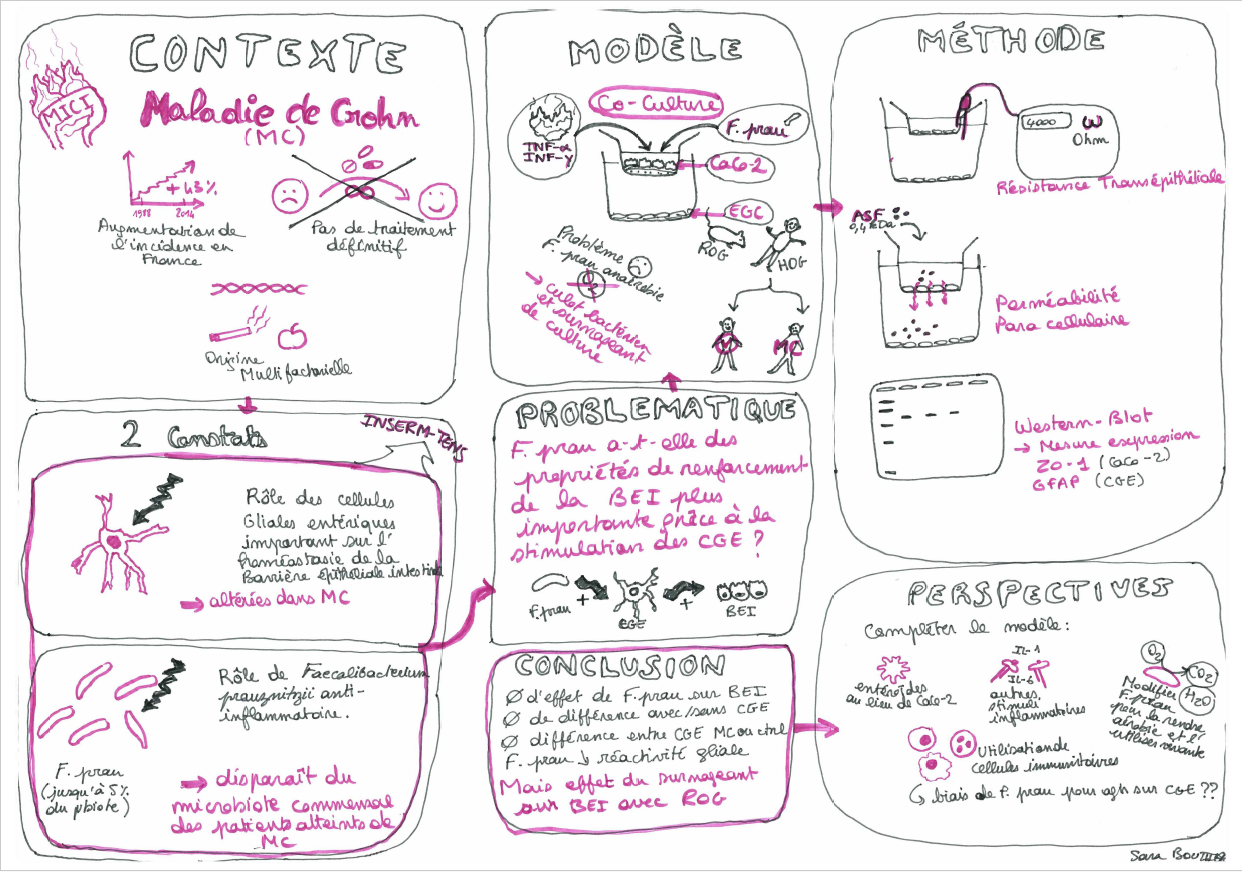 CONTEXTE
MICI
Maladie de Crohn
(MC)
+43%
1988 2014
Augmentation de
l'incidence en
France
Pas de traitement
définitif
Origine
Multifactorielle
2 Constats
INSERM-TENS
Rôle des cellules
Gliales entériques
important sur l'
homéostasie de la
Barrière épithéliale intestinale
→ altérées dans MC
Rôle de Faecalibacterium
prausnitzii anti-
inflammatoire.
F. prau
(jusqu'à 5%
du µbiote)
→ disparaît du
microbiote commensal
des patients atteints de
MC
MODÈLE
Co-Culture
TNF-α
INF-γ
F. prau?
CaCo-2
EGC
ROG
HOG
Problème
F. prau anaérobie
O2
→ culot bactérien
et surnageant
de culture
MC
PROBLEMATIQUE
F. prau a-t-elle des
propriétés de renforcement
de la BEI plus
importante grâce à la
stimulation des CGE ?
F. prau + CGE + BEI
CONCLUSION
Ø d'effet de F. prau sur BEI
Ø de différence avec/sans CGE
Ø différence entre CGE MC ou ctrl
F. prau ↓ réactivité gliale
Mais effet du surnageant
sur BEI avec ROG
MÉTHODE
4000
ω
Ohm
Résistance Transépithéliale
ASF
0,4 kDa
Perméabilité
Para cellulaire
Western-Blot
→ Mesure expression
ZO-1 (CaCo-2)
GFAP (CGE)
PERSPECTIVES
Compléter le modèle:
entéroïdes
au lieu de CaCo-2
IL-1
IL-6
autres
stimuli
inflammatoires
O2
CO2
H2O
Modifier
F. prau
pour la rendre
aérobie et l'
utiliser vivante
Utilisation de
cellules immunitaires
↳ biais de F. prau pour agir sur CGE ??